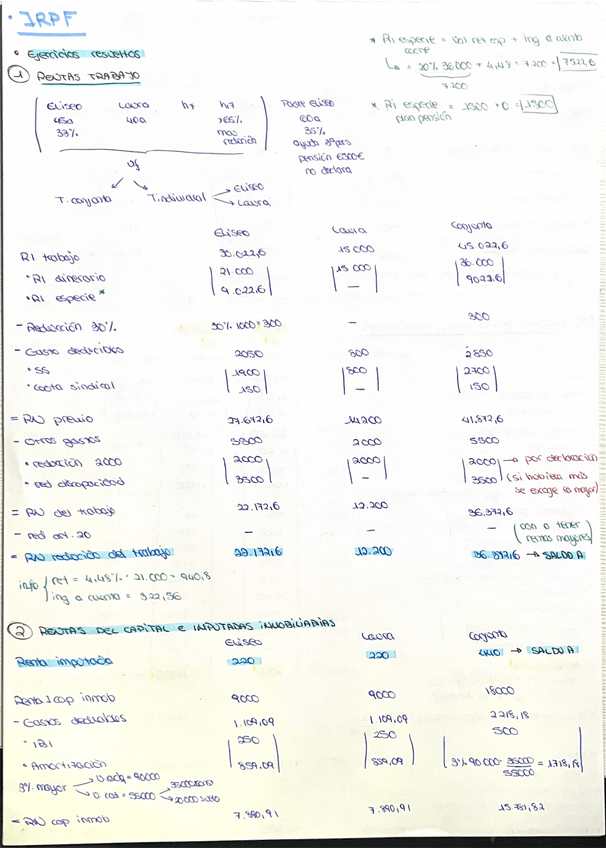 · IRPF
• Ejercicios resueltos
① RENTAS TRABAJO
* RI especie coche = Val ret esp + ing a cuenta
↳ = 20% 36000 + 4,48% · 7200 = 7522,6
7200
* RI especie plan pensión = 1500 + 0 = 1500
Eliseo Laura h7 h7 Padre Eliseo
45a 40a >65% 80a
33% 35%
pensión 6500€
no declara
uf
T. conjunta T. individual → Eliseo
→ Laura
Eliseo Laura Conjunta
RI trabajo 30.022,6 15 000 45.022,6
• RI dinerario 21 000 15 000 36.000
• RI especie * 9.022,6 — 9022,6
- Reducción 30% 30% 1000 = 300 — 300
- Gasto deducibles 2050 800 2850
• SS 1900 800 2700
• cuota sindical 150 — 150
= RN previo 27.672,6 14.200 41.872,6
- Otros gastos 5500 2000 5500
• reducción 2000 2000 2000 2000 → por declaración
• red discapacidad 3500 — 3500 (si hubiera más se escoge la mayor)
= RN del trabajo 22.172,6 12.200 36.372,6
- red art. 20 — — — (van a tener rentas mayores)
= RN reducido del trabajo 22.172,6 12.200 36.372,6 → SALDO A
info ret = 4,48% · 21.000 = 940,8
ing a cuenta = 322,56
② RENTAS DEL CAPITAL E IMPUTADAS INMOBILIARIAS
Eliseo Laura Conjunta
Renta imputada 220 220 440 → SALDO A
Renta I cap inmob 9000 9000 18000
- Gastos deducibles 1.109,09 1.109,09 2218,18
• IBI 250 250 500
• Amortización 859,09 859,09 3% 90.000 · 35000/55000 = 1718,18
3% mayor → V adq = 90000
→ V cat = 55000 → 35000
→ 20000 suelo
= RN cap inmob 7.890,91 7.890,91 15.781,82